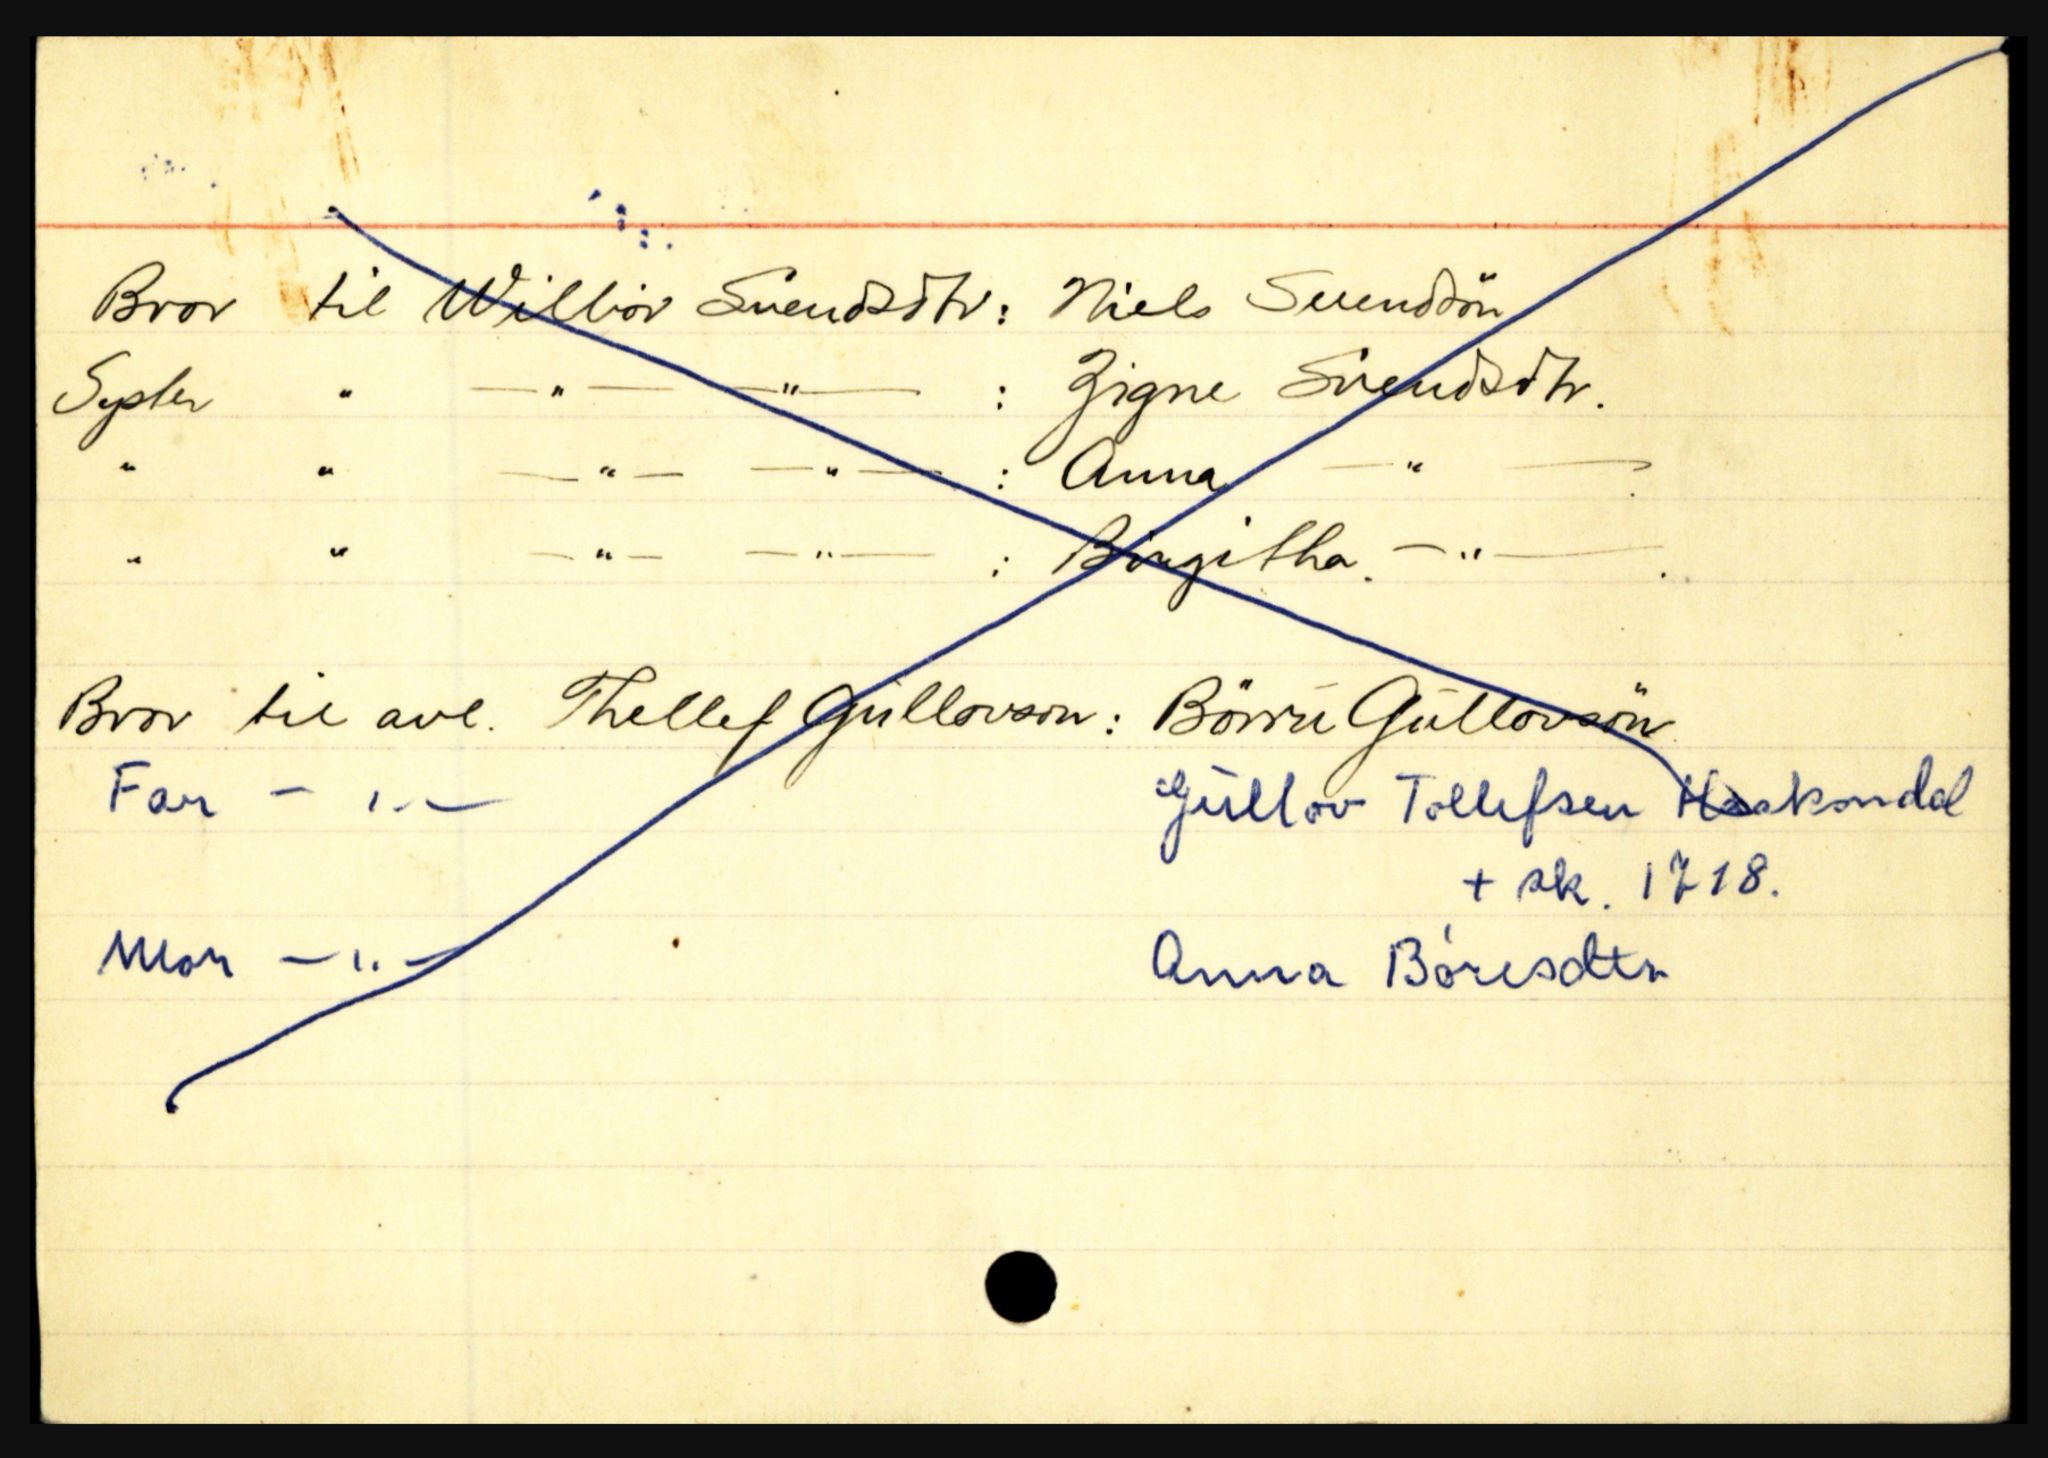 Bror til Willior Svendsdtr: Niels Svendsön
Syster " —"— —"— : Zigne Svendsdtr.
" " —"— —"— : Anna —"—.
" " —"— —"— : Birgitha. —"—.
Bror til avl. Thellef Gullovson: Börrü Güllovsön
Far — " — Güllov Tollefsen Haakondal
+ sk. 1718.
Mor — " — Anna Bóresdtr